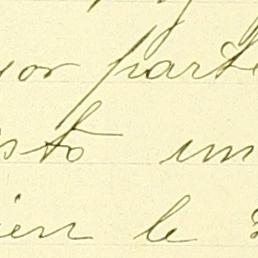 yor parte
sto un
ien le